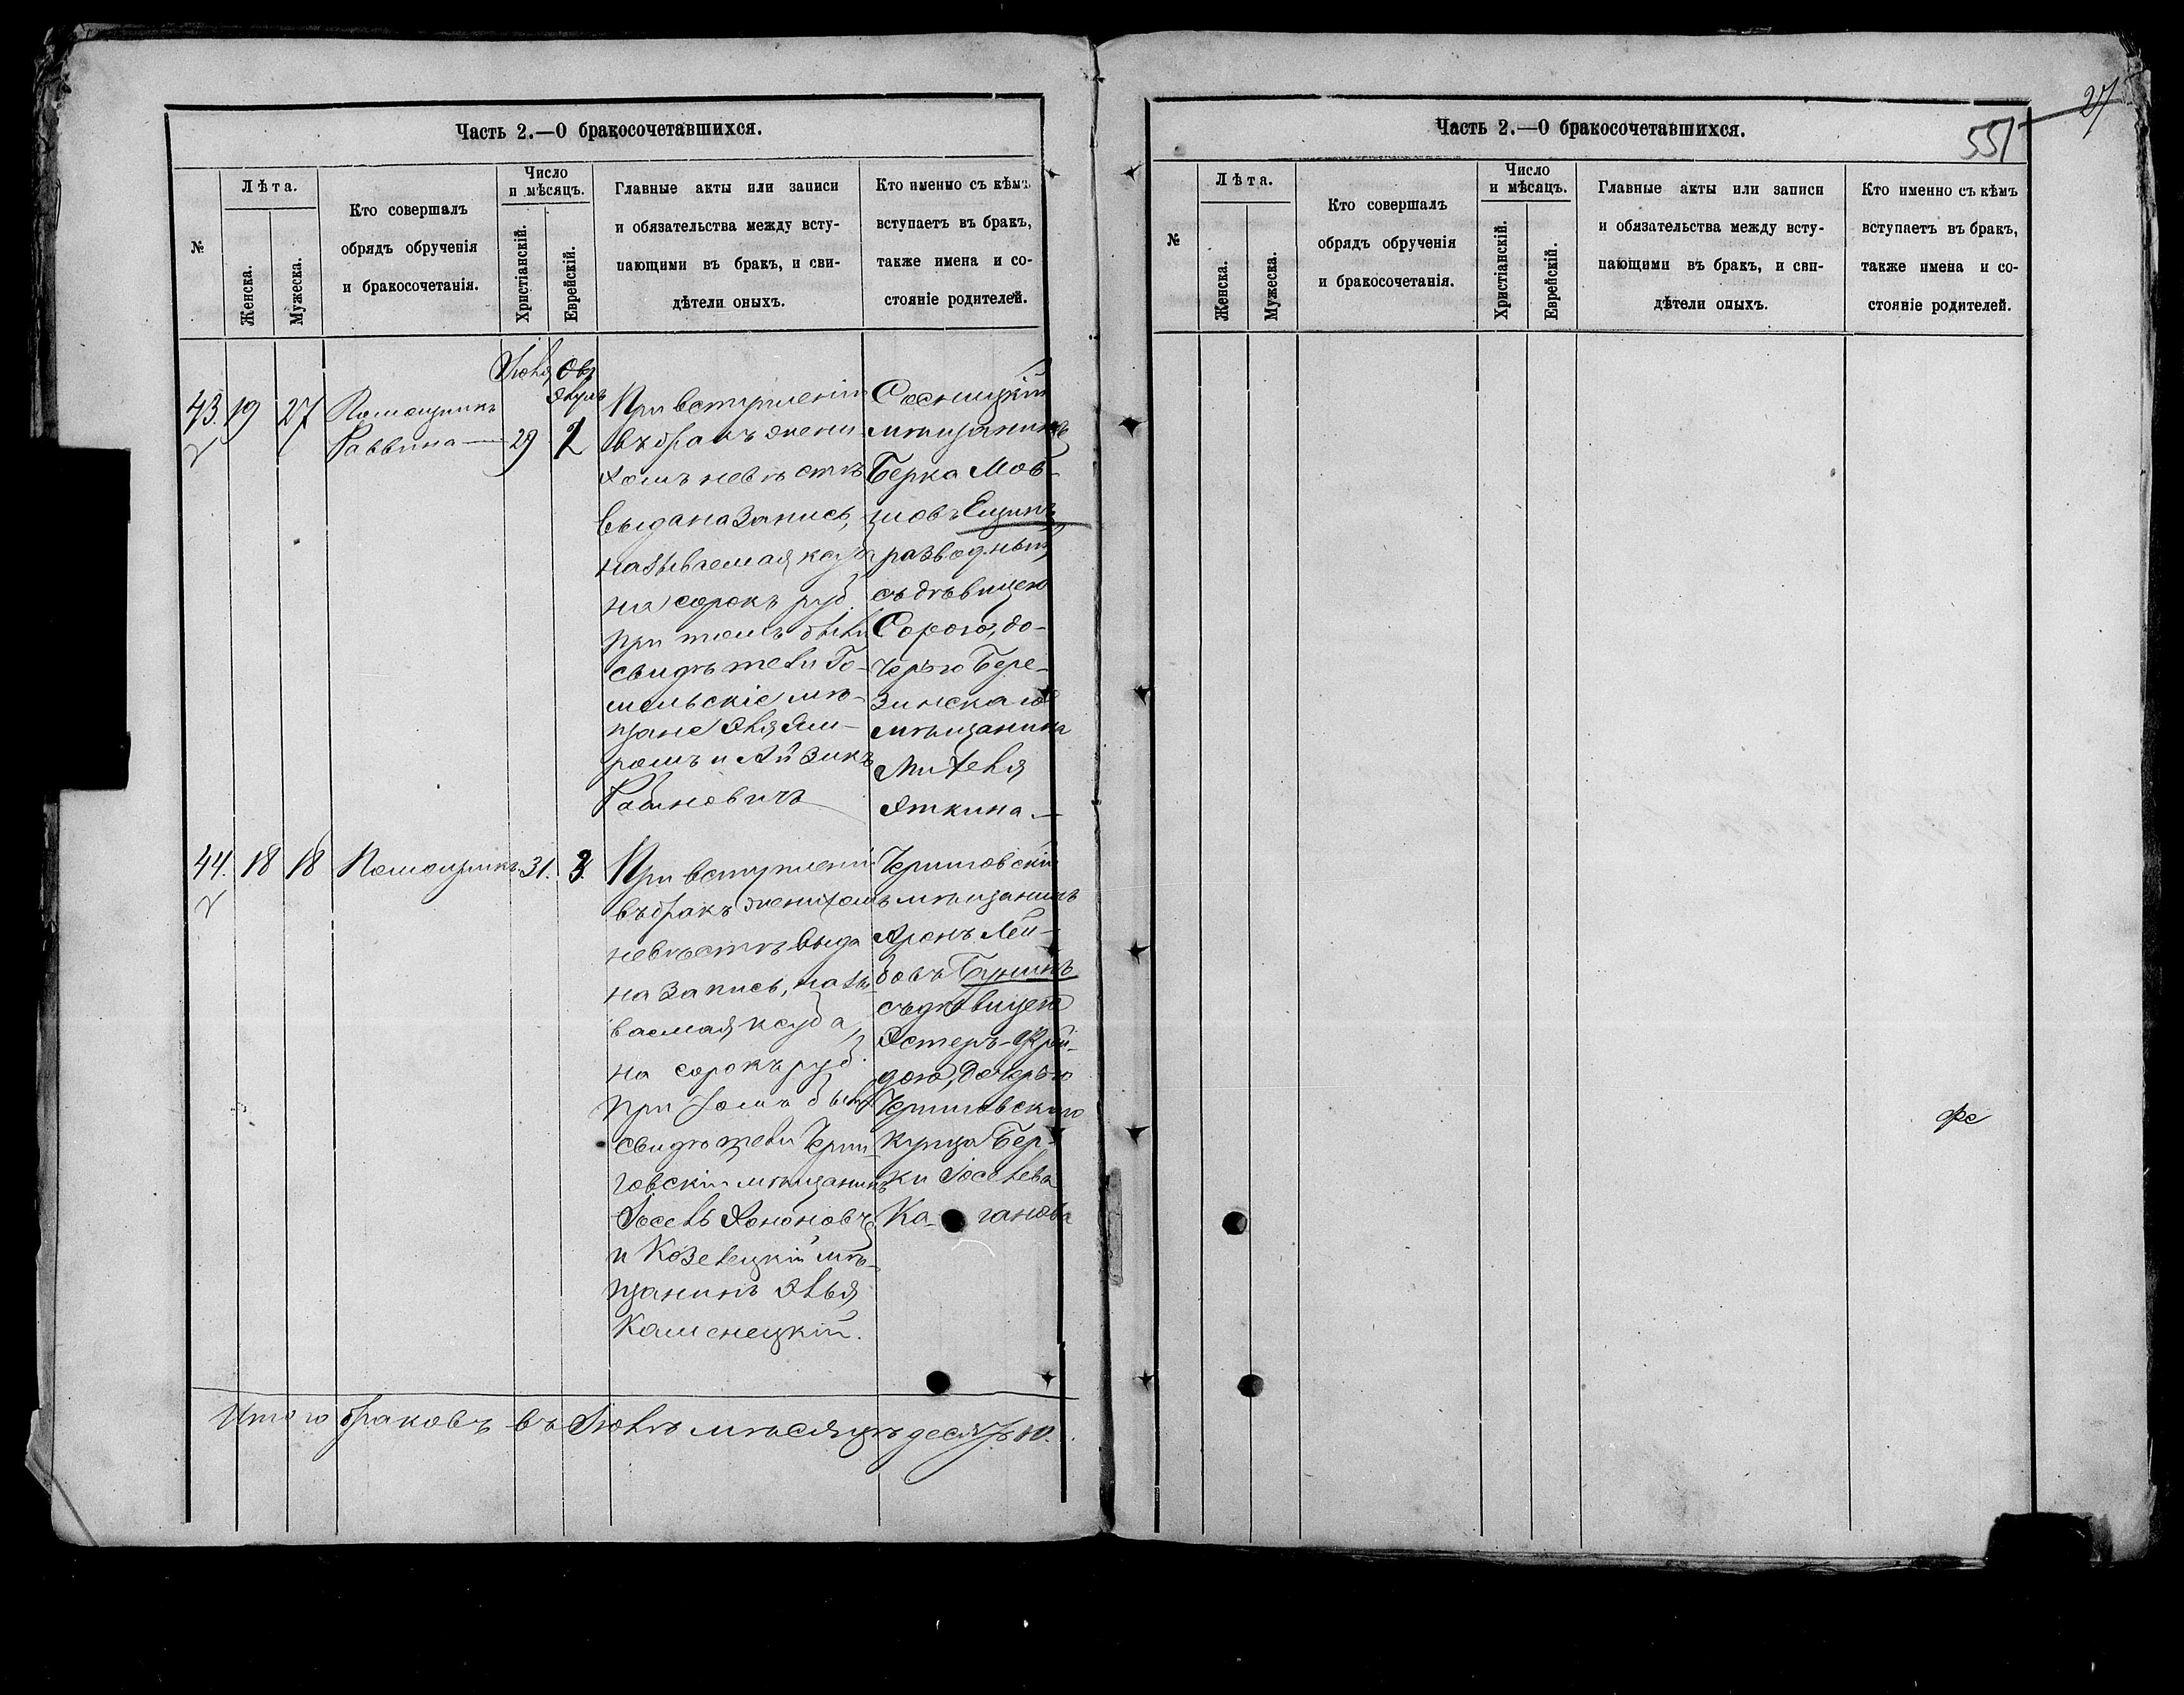 Часть 2.—О бракосочетавшихся.
№
Лѣта.
Женска.
Мужеска.
Кто совершалъ
обрядъ обрученія
и бракосочетанія.
Число
и мѣсяцъ.
Христіанскій.
Еврейскій.
Главные акты или записи
и обязательства между всту-
пающими въ бракъ, и сви-
дѣтели оныхъ.
Кто именно съ кѣмъ
вступаетъ въ бракъ,
также имена и со-
стояніе родителей.
Іюля
43. 19 27
Помощникъ
Раввина
29 2
При вступленіи
въ бракъ жени-
хомъ невѣстѣ
выдана запись,
называемая ксуба
на сорокъ руб.
при томъ были
свидѣтели Го-
мельскіе мѣ-
щане
и Айзикъ
Рабиновичъ
Сосницкій
мѣщанинъ
Берка Мов-
шовъ
разводный
съ дѣвицею
Сорою, до-
черью Бере-
зинскаго
мѣщанина
Михеля
Эткина
44. 18 18 Помощникъ 31. 3.
При вступленіи
въ бракъ женихомъ
невѣстѣ выда
на запись, назы-
ваемая ксуба,
на сорокъ руб.
при томъ были
свидѣтели Черни-
говскій мѣщанинъ
Іосель Хононовъ
и Козелецкій мѣ-
щанинъ Элья
Каменецкій.
Черниговскій
мѣщанинъ
Аронъ Лей-
бовъ Бунинъ
съ дѣвицею
Эстеръ-Фрей-
дою, дочерью
Черниговскаго
купца Бер-
ки Іоселева
Каганова
Итого браковъ въ Іюлѣ мѣсяцѣ десять 10.
27
551
Часть 2.—О бракосочетавшихся.
№
Лѣта.
Женска.
Мужеска.
Кто совершалъ
обрядъ обрученія
и бракосочетанія.
Число
и мѣсяцъ.
Христіанскій.
Еврейскій.
Главные акты или записи
и обязательства между всту-
пающими въ бракъ, и сви-
дѣтели оныхъ.
Кто именно съ кѣмъ
вступаетъ въ бракъ,
также имена и со-
стояніе родителей.